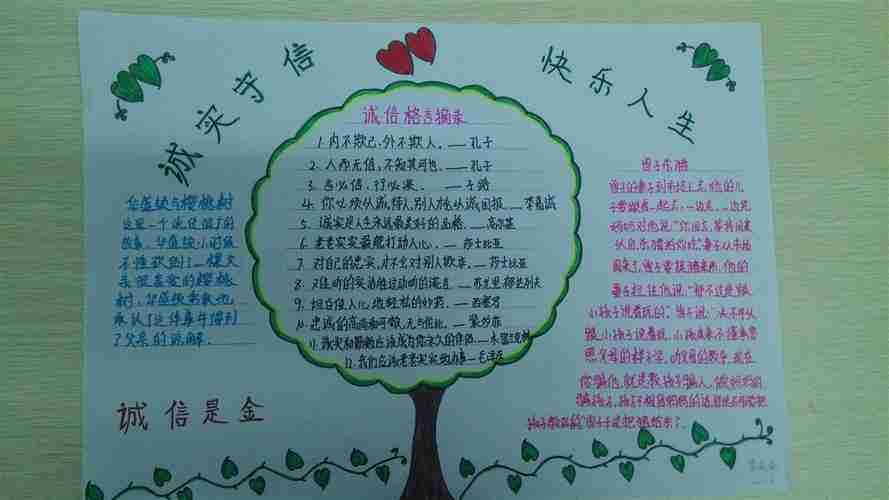 诚实守信
快乐人生
诚信格言摘录
1. 内不欺己,外不欺人。——孔子
2. 人而无信,不知其可也。——孔子
3. 言必信,行必果。——子路
4. 你必须以诚待人,别人才会以诚回报。——李嘉诚
5. 诚实是人生永远最美好的品格。——高尔基
6. 老老实实最能打动人心。——莎士比亚
7. 对自己的忠实,才不会对别人欺诈。——莎士比亚
8.
9. ——西塞罗
10. 忠诚的高尚和可敬,无与伦比。——蒙
11. 诚实和勤勉应该成为你永久的伴侣。——
12. 我们应该老老实实地办事——毛泽东
华盛顿与樱桃树
这是一个流传很广的
故事。华盛顿小时候
不懂砍倒了一棵父
亲很喜爱的樱桃
树,华盛顿勇敢地
承认了这件事并得到
了父亲的谅解。
诚信是金
曾子杀猪
曾子的妻子到市场上去,他的儿
子要跟着一起去,一边走,一边哭
妈妈对他说:“你回去,等我回来
以后,杀猪给你吃。”妻子从市场
回来了,曾子要捉猪来杀,他的
妻子拦住他说:“那不过是跟
小孩子说着玩的。”曾子说:“决不可以
跟小孩子说着玩。小孩本来不懂事,要
照父母的样子学,听父母的教导。现在
你骗他,就是教孩子骗人。做妈妈的
骗孩子,孩子不相信妈妈的话,那是不可能把
孩子教好的”曾子于是把猪给杀了。